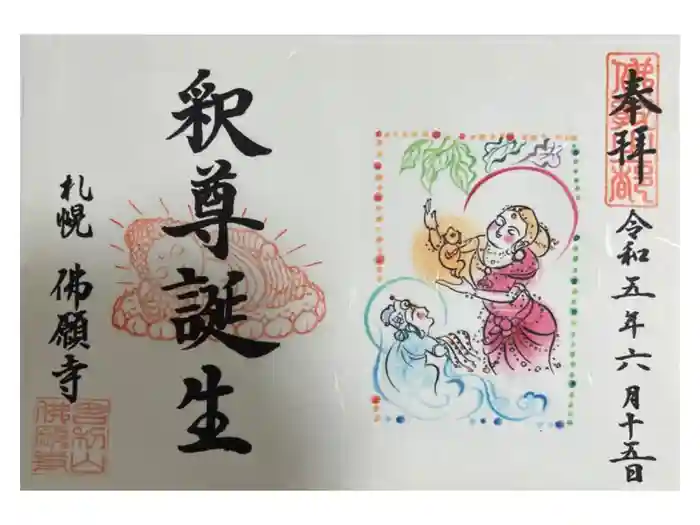 奉拝
令和五年六月十五日
釈尊誕生
札幌 佛願寺